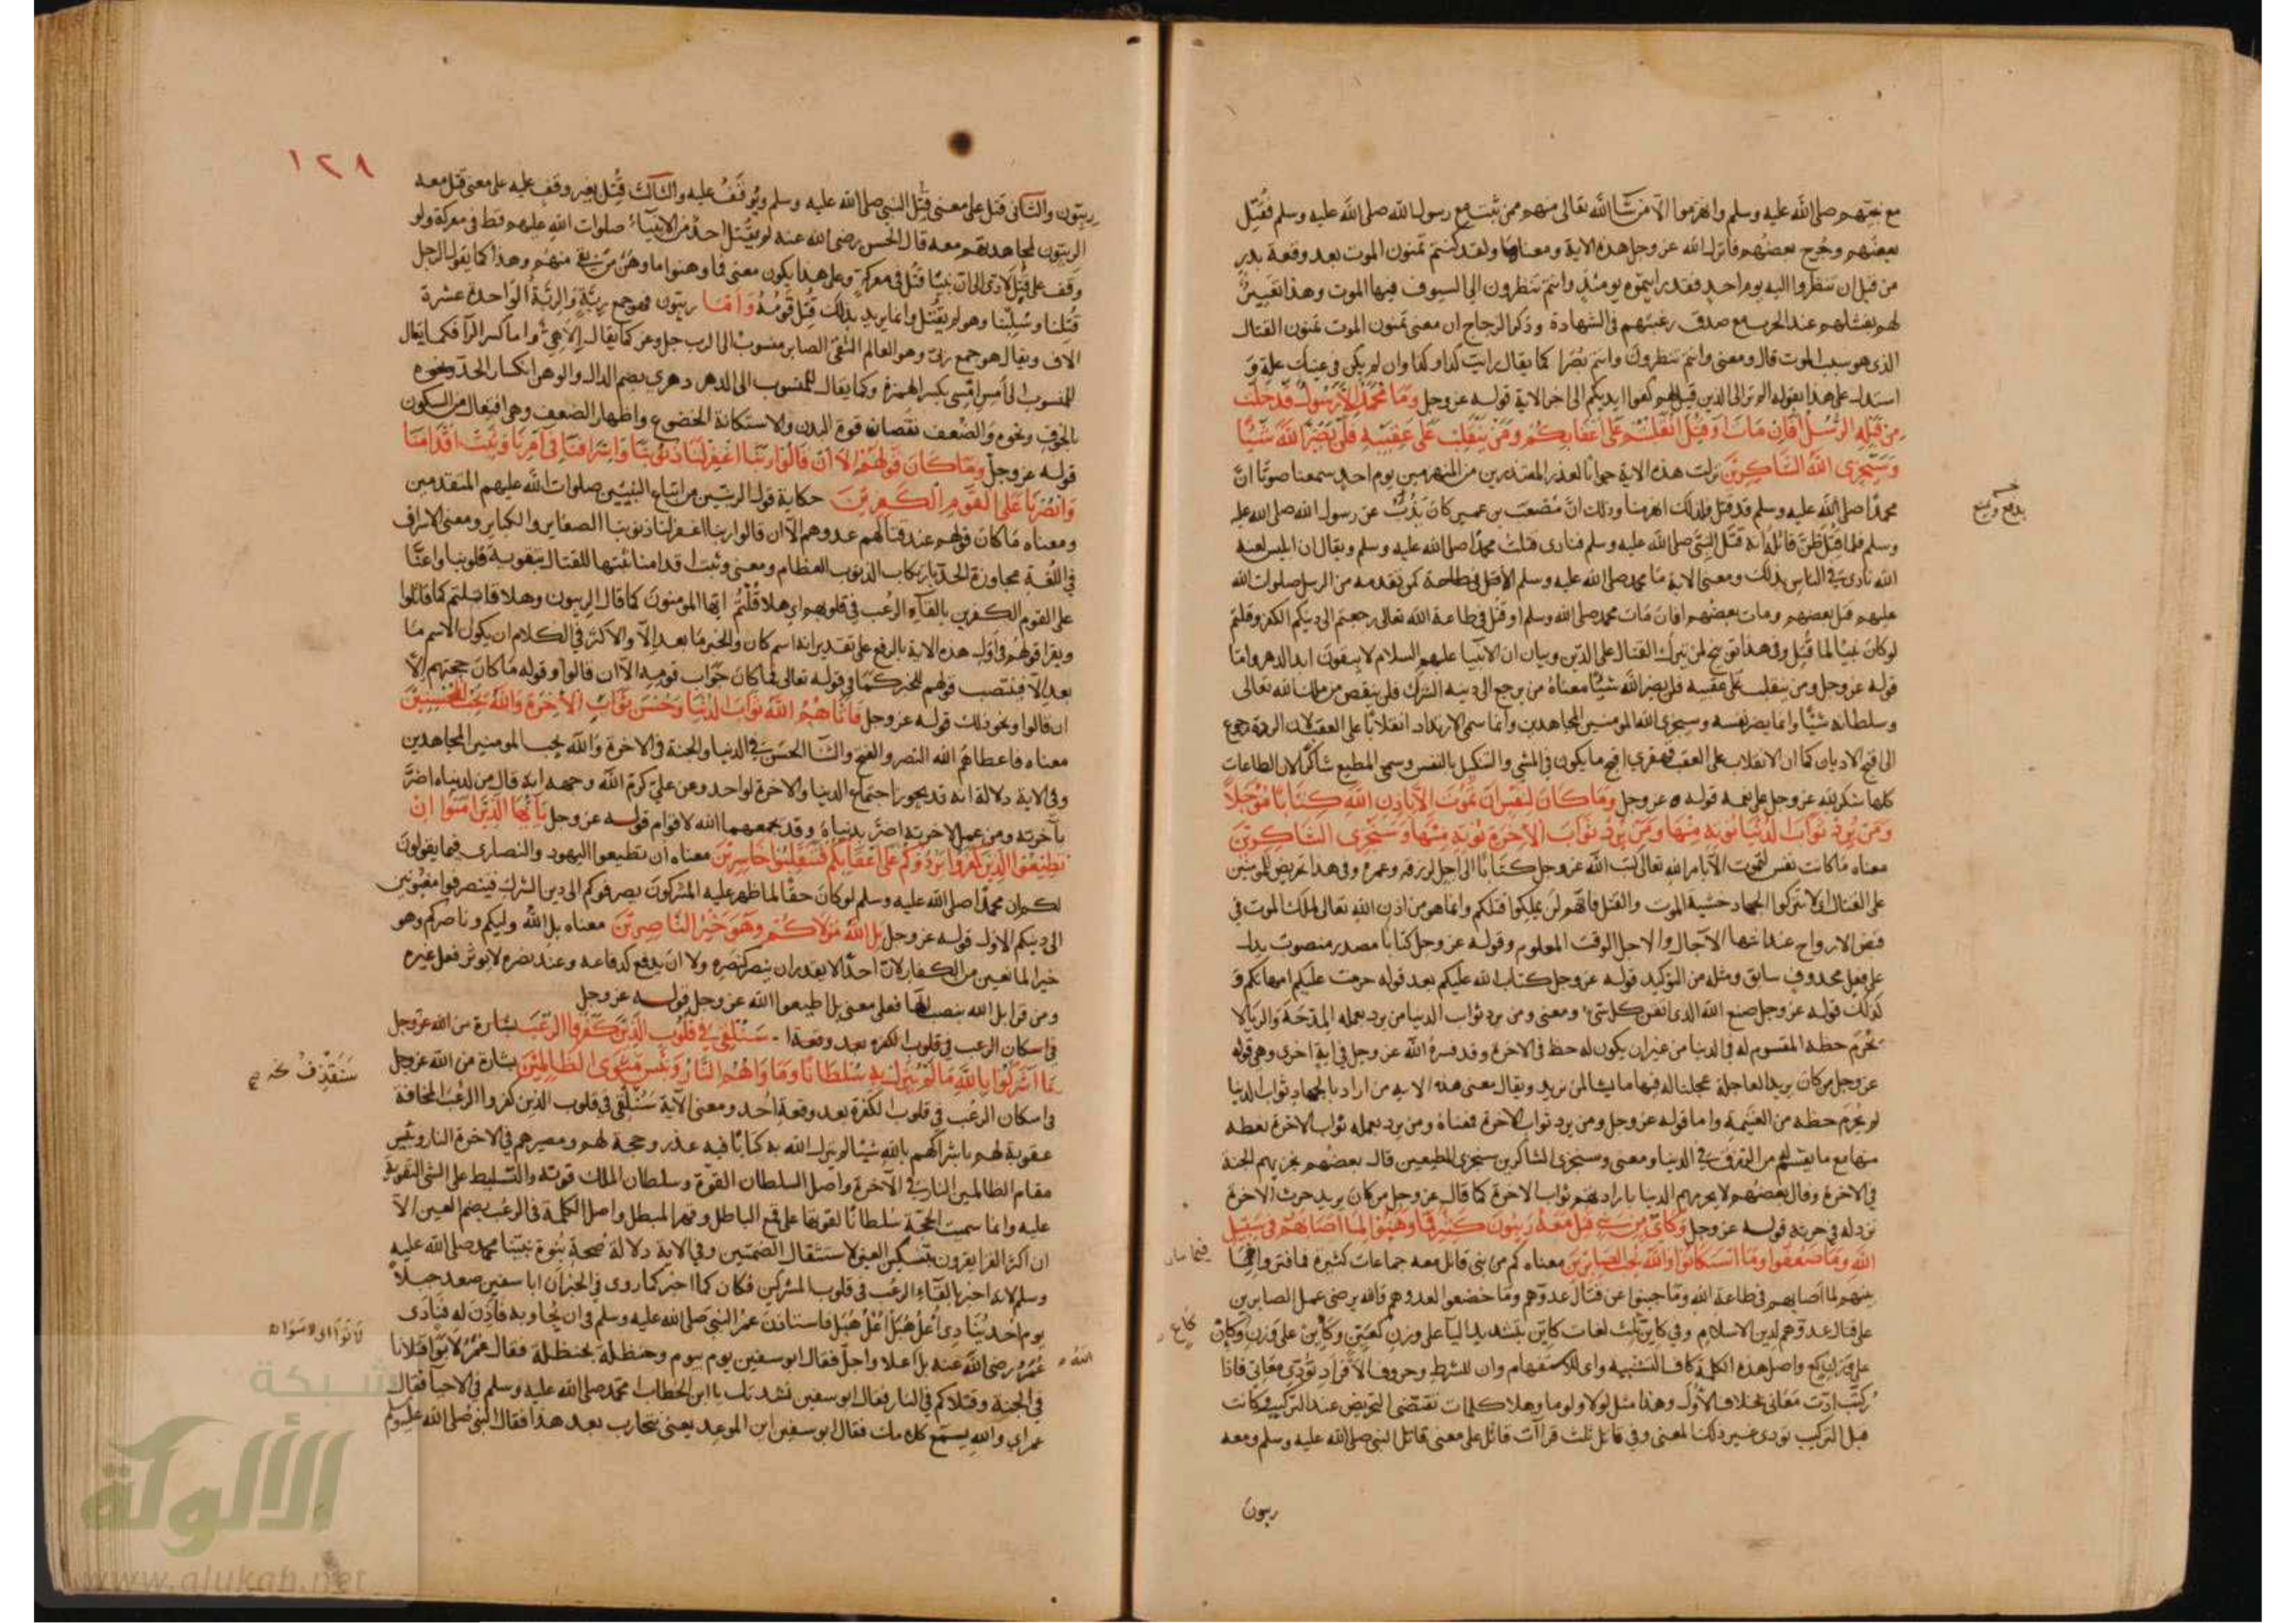 مع نبيهم صلى الله عليه وسلم وانهزموا الا من شا الله تعالى منهم ممن ثبت مع رسول الله صلى الله عليه وسلم فقتل
بعضهم وجرح بعضهم فانزل الله عز وجل هذه الاية ومعناها ولقد كنتم تمنون الموت بعد وقعة بدر
من قبل ان تنظروا اليه يوم احد فقد رايتموه يومئذ وانتم تنظرون الى السيوف فيها الموت وهذا تعيير
لهم بفشلهم عند الحرب مع صدق رغبتهم فى الشهادة وذكر الزجاج ان معنى تمنون الموت تمنون القتال
الذى هو سبب الموت قال ومعنى وانتم تنظرون وانتم بصرا كما يقال رايت كذا وكذا وان لم يكن فى عينك علة و
استدل على هذا بقوله الم تر الى الذين قيل لهم كفوا ايديكم الى اخر الاية قوله عز وجل وَمَا مُحَمَّدٌ اِلاَّ رَسُولٌ قَدْ خَلَتْ
مِنْ قَبْلِهِ الرُّسُلُ اَفَاِنْ مَاتَ اَوْ قُتِلَ انْقَلَبْتُمْ عَلَى اَعْقَابِكُمْ وَمَنْ يَنْقَلِبْ عَلَى عَقِبَيْهِ فَلَنْ يَضُرَّ اللّٰهَ شَيْئًا
وَسَيَجْزِى اللّٰهُ الشَّاكِرِينَ نزلت هذه الاية جوابا لعذر المعتذرين من المنهزمين يوم احد سمعنا صوتا ان
محمدا صلى الله عليه وسلم قد قتل فلذلك انهزمنا وذلك ان مصعب بن عمير كان يذب عن رسول الله صلى الله عليه
يدفع ويمنع
وسلم فلما قتل ظن قاتله انه قتل النبى صلى الله عليه وسلم فنادى قتلت محمدا صلى الله عليه وسلم ويقال ان ابليس لعنه
الله نادى فى الناس بذلك ومعنى الاية ما محمد صلى الله عليه وسلم الا كمن تقدمه من الرسل صلوات الله
عليهم قتل بعضهم ومات بعضهم افان مات محمد صلى الله عليه وسلم او قتل فى طاعة الله تعالى رجعتم الى دينكم الكفر وقلتم
لو كان نبيا لما قتل وفى هذا توبيخ لمن يترك القتال على الدين وبيان ان الانبيا عليهم السلام لا يبقون ابد الدهر واما
قوله عز وجل ومن ينقلب على عقبيه فلن يضر الله شيئا معناه من يرجع الى دينه الشرك فلن ينقص من ملك الله تعالى
وسلطانه شيئا وانما يضر نفسه وسيجزى الله المومنين المجاهدين وانما سمى الارتداد انقلابا على العقب لان الردة رجوع
الى اقبح الاديان كما ان الانقلاب على العقب قهقرى اقبح ما يكون فى المشى والتنكيل بالنفس وسمى المطيع شاكرا لان الطاعات
كلها شكر لله عز وجل على نعمه قوله عز وجل وَمَا كَانَ لِنَفْسٍ اَنْ تَمُوتَ اِلاَّ بِاِذْنِ اللّٰهِ كِتَابًا مُؤَجَّلاً
وَمَنْ يُرِدْ ثَوَابَ الدُّنْيَا نُؤْتِهِ مِنْهَا وَمَنْ يُرِدْ ثَوَابَ الْاٰخِرَةِ نُؤْتِهِ مِنْهَا وَسَنَجْزِى الشَّاكِرِينَ
معناه ما كانت نفس لتموت الا بامر الله تعالى كتب الله عز وجل كتابا الى اجل لرزقه وعمره وفى هذا تحريض للمومنين
على القتال لئلا يتركوا الجهاد خشية الموت والقتل فانهم لن يملكوا قتلكم وانما هو من اذن الله تعالى لملك الموت فى
قبض الارواح عند انتها الآجال والاجل الوقت المعلوم وقوله عز وجل كتابا مصدر منصوب يدل
على فعل محذوف سابق ومثله من التوكيد قوله عز وجل كتاب الله عليكم بعد قوله حرمت عليكم امهاتكم و
كذلك قوله عز وجل صنع الله الذى اتقن كل شئ ومعنى ومن يرد ثواب الدنيا من يرد بعمله المدحة والريا لا
يحرم حظه المقسوم له فى الدنيا من غير ان يكون له حظ فى الاخرة وقد فسره الله عز وجل فى اية اخرى وهى قوله
عز وجل من كان يريد العاجلة عجلنا له فيها ما نشا لمن نريد ويقال معنى هذه الاية من اراد بالجهاد ثواب الدنيا
لم يحرم حظه من الغنيمة واما قوله عز وجل ومن يرد ثواب الاخرة فمعناه ومن يرد بعمله ثواب الاخرة نعطه
منها مع ما يقسم لهم من الرزق فى الدنيا ومعنى وسنجزى الشاكرين سنجزى المطيعين قال بعضهم يجزيهم الجنة
فى الاخرة وقال بعضهم لا يحرمهم الدنيا بارادتهم ثواب الاخرة كما قال عز وجل من كان يريد حرث الاخرة
نزد له فى حرثه قوله عز وجل وَكَاَيِّنْ مِنْ نَبِىٍّ قُتِلَ مَعَهُ رِبِّيُّونَ كَثِيرٌ فَمَا وَهَنُوا لِمَا اَصَابَهُمْ فِى سَبِيلِ
اللّٰهِ وَمَا ضَعُفُوا وَمَا اسْتَكَانُوا وَاللّٰهُ يُحِبُّ الصَّابِرِينَ معناه كم من نبى قاتل معه جماعات كثيرة فما فتروا
منهم لما اصابهم فى طاعة الله وما جبنوا عن قتال عدوهم وما خضعوا لعدوهم والله يرضى عمل الصابرين
على قتال عدوهم لدين الاسلام وفى كاين ثلث لغات كاين بتشديد اليا على وزن كعين وكاين على وزن وكان
على وزن كع واصل هذه الكلمة كاف التشبيه واى للاستفهام وان للشرط وحروف الافراد تودى معانى فاذا
ركبت ادت معانى بخلاف الاول وهذا مثل لولا ولوما وهلا كلمات تقتضى التحريض عند التركيب وكانت
قبل التركيب تودى غير ذلك المعنى وفى قاتل ثلث قرآات قاتل على معنى قاتل النبى صلى الله عليه وسلم ومعه
ربيون
١٢٨
ربيون والثانى قتل على معنى قتل النبى صلى الله عليه وسلم ويوقف عليه والثالث قتل بغير وقف عليه على معنى قتل معه
الربيون لمجاهدتهم معه قال الحسن رضى الله عنه لم يقتل احد من الانبيآء صلوات الله عليهم قط فى معركة ولو
وقف على قتل لادى الى ان نبيا قتل فى معركة وعلى هذا يكون معنى فما وهنوا ما وهن من بقى منهم وهذا كما يقول الرجل
قتلنا وسلبنا وهو لم يقتل وانما يريد بذلك قتل قومه وَاَمَّا ربيون فهو جمع ربة والربة الواحدة عشرة
الاف ويقال هو جمع ربى وهو العالم التقى الصابر منسوب الى الرب جل وعز كما يقال الاهى واما كسر الرا فكما يقال
للمنسوب الى امس امسى بكسر الهمزة وكما يقال للمنسوب الى الدهر دهرى بضم الدال والوهن انكسار الحد ونحوه
بالخوف ونحوه والضعف نقصان قوة البدن والاستكانة الخضوع واظهار الضعف وهى افتعال من السكون
قوله عز وجل وَمَا كَانَ قَوْلَهُمْ اِلاَّ اَنْ قَالُوا رَبَّنَا اغْفِرْ لَنَا ذُنُوبَنَا وَاِسْرَافَنَا فِى اَمْرِنَا وَثَبِّتْ اَقْدَامَنَا
وَانْصُرْنَا عَلَى الْقَوْمِ الْكٰفِرِينَ حكاية قول الربيين من اتباع النبيين صلوات الله عليهم المتقدمين
ومعناه ما كان قولهم عند قتالهم عدوهم الا ان قالوا ربنا اغفر لنا ذنوبنا الصغاير والكباير ومعنى الاسراف
فى اللغة مجاوزة الحد بارتكاب الذنوب العظام ومعنى وثبت اقدامنا ثبتها للقتال بتقوية قلوبنا واعنا
على القوم الكفرين بالقآء الرعب فى قلوبهم اى هلا قلتم ايها المومنون كما قال الربيون وهلا قاتلتم كما قاتلوا
ويقرا قولهم فى اول هذه الاية بالرفع على تقدير انه اسم كان والخبر ما بعد الا والاكثر فى الكلام ان يكون الاسم ما
بعد الا فينتصب قولهم للخبر كما فى قوله تعالى فما كان جواب قومه الا ان قالوا وقوله ما كان حجتهم الا
ان قالوا ونحو ذلك قوله عز وجل فَاٰتَاهُمُ اللّٰهُ ثَوَابَ الدُّنْيَا وَحُسْنَ ثَوَابِ الْاٰخِرَةِ وَاللّٰهُ يُحِبُّ الْمُحْسِنِينَ
معناه فاعطاهم الله النصر والفتح والثنا الحسن فى الدنيا والجنة فى الاخرة والله يحب المومنين المجاهدين
وفى الاية دلالة انه قد يجوز اجتماع الدنيا والاخرة لواحد وعن على كرم الله وجهه انه قال من لدنياه اضر
بآخرته ومن عمل لاخرته اضر بدنياه وقد يجمعهما الله لاقوام قوله عز وجل يَا اَيُّهَا الَّذِينَ اٰمَنُوا اِنْ
تُطِيعُوا الَّذِينَ كَفَرُوا يَرُدُّوكُمْ عَلَى اَعْقَابِكُمْ فَتَنْقَلِبُوا خَاسِرِينَ معناه ان تطيعوا اليهود والنصارى فيما يقولون
لكم ان محمدا صلى الله عليه وسلم لو كان حقا لما ظهر عليه المشركون يصرفوكم الى دين الشرك فينصرفوا مغبونين
الى دينكم الاول قوله عز وجل بَلِ اللّٰهُ مَوْلَاكُمْ وَهُوَ خَيْرُ النَّاصِرِينَ معناه بل الله وليكم وناصركم وهو
خير المانعين من الكفار لان احدا لا يقدر ان ينصر كنصره ولا ان يدفع كدفاعه وعند نصره لا يوثر فعل غيره
ومن قرا بل الله بنصب الها فعلى معنى بل اطيعوا الله عز وجل قوله عز وجل
فى اسكان الرعب فى قلوب الكفرة بعد وقعة ا. سَنُلْقِى فِى قُلُوبِ الَّذِينَ كَفَرُوا الرُّعْبَ بشارة من الله عز وجل
بِمَا اَشْرَكُوا بِاللّٰهِ مَا لَمْ يُنَزِّلْ بِهِ سُلْطَانًا وَمَاْوَاهُمُ النَّارُ وَبِئْسَ مَثْوَى الظَّالِمِينَ بشارة من الله عز وجل
سنقذف
فى اسكان الرعب فى قلوب الكفرة بعد وقعة احد ومعنى الآية سنلقى فى قلوب الذين كفروا الرعب المخافة
عقوبة لهم باشراكهم بالله شيئا لم ينزل الله به كتابا فيه عذر وحجة لهم ومصيرهم فى الاخرة النار وبئس
مقام الظالمين النار فى الآخرة واصل السلطان القوة وسلطان الملك قوته والتسليط على الشى التقوية
عليه وانما سميت الحجة سلطانا لقوتها على قمع الباطل وقهر المبطل واصل الكلمة فى الرعب بضم العين الا
ان اكثر القرا يقرون بتسكين العين لاستثقال الضمتين وفى الاية دلالة صحة نبوة نبينا محمد صلى الله عليه
وسلم لانه اخبر بالقاء الرعب فى قلوب المشركين فكان كما اخبر كما روى فى الخبر ان ابا سفين صعد جبلا
يوم احد ينادى اعل هبل اعل هبل فاستاذن عمر النبى صلى الله عليه وسلم فى ان يجاوبه فاذن له فنادى
عمر رضى الله عنه بل اعلا واجل فقال ابو سفين يوم بيوم وحنظلة بحنظلة فقال عمر لا سوا قتلانا
فى الجنة وقتلاكم فى النار فقال ابو سفين نشدتك يا ابن الخطاب امحمد صلى الله عليه وسلم فى الاحيا فقال
عمر اى والله يسمع كلامك فقال ابو سفين اين الموعد يعنى نتحارب بعد هذا فقال النبى صلى الله عليه وسلم
شبكة
الألوكة
www.alukah.net